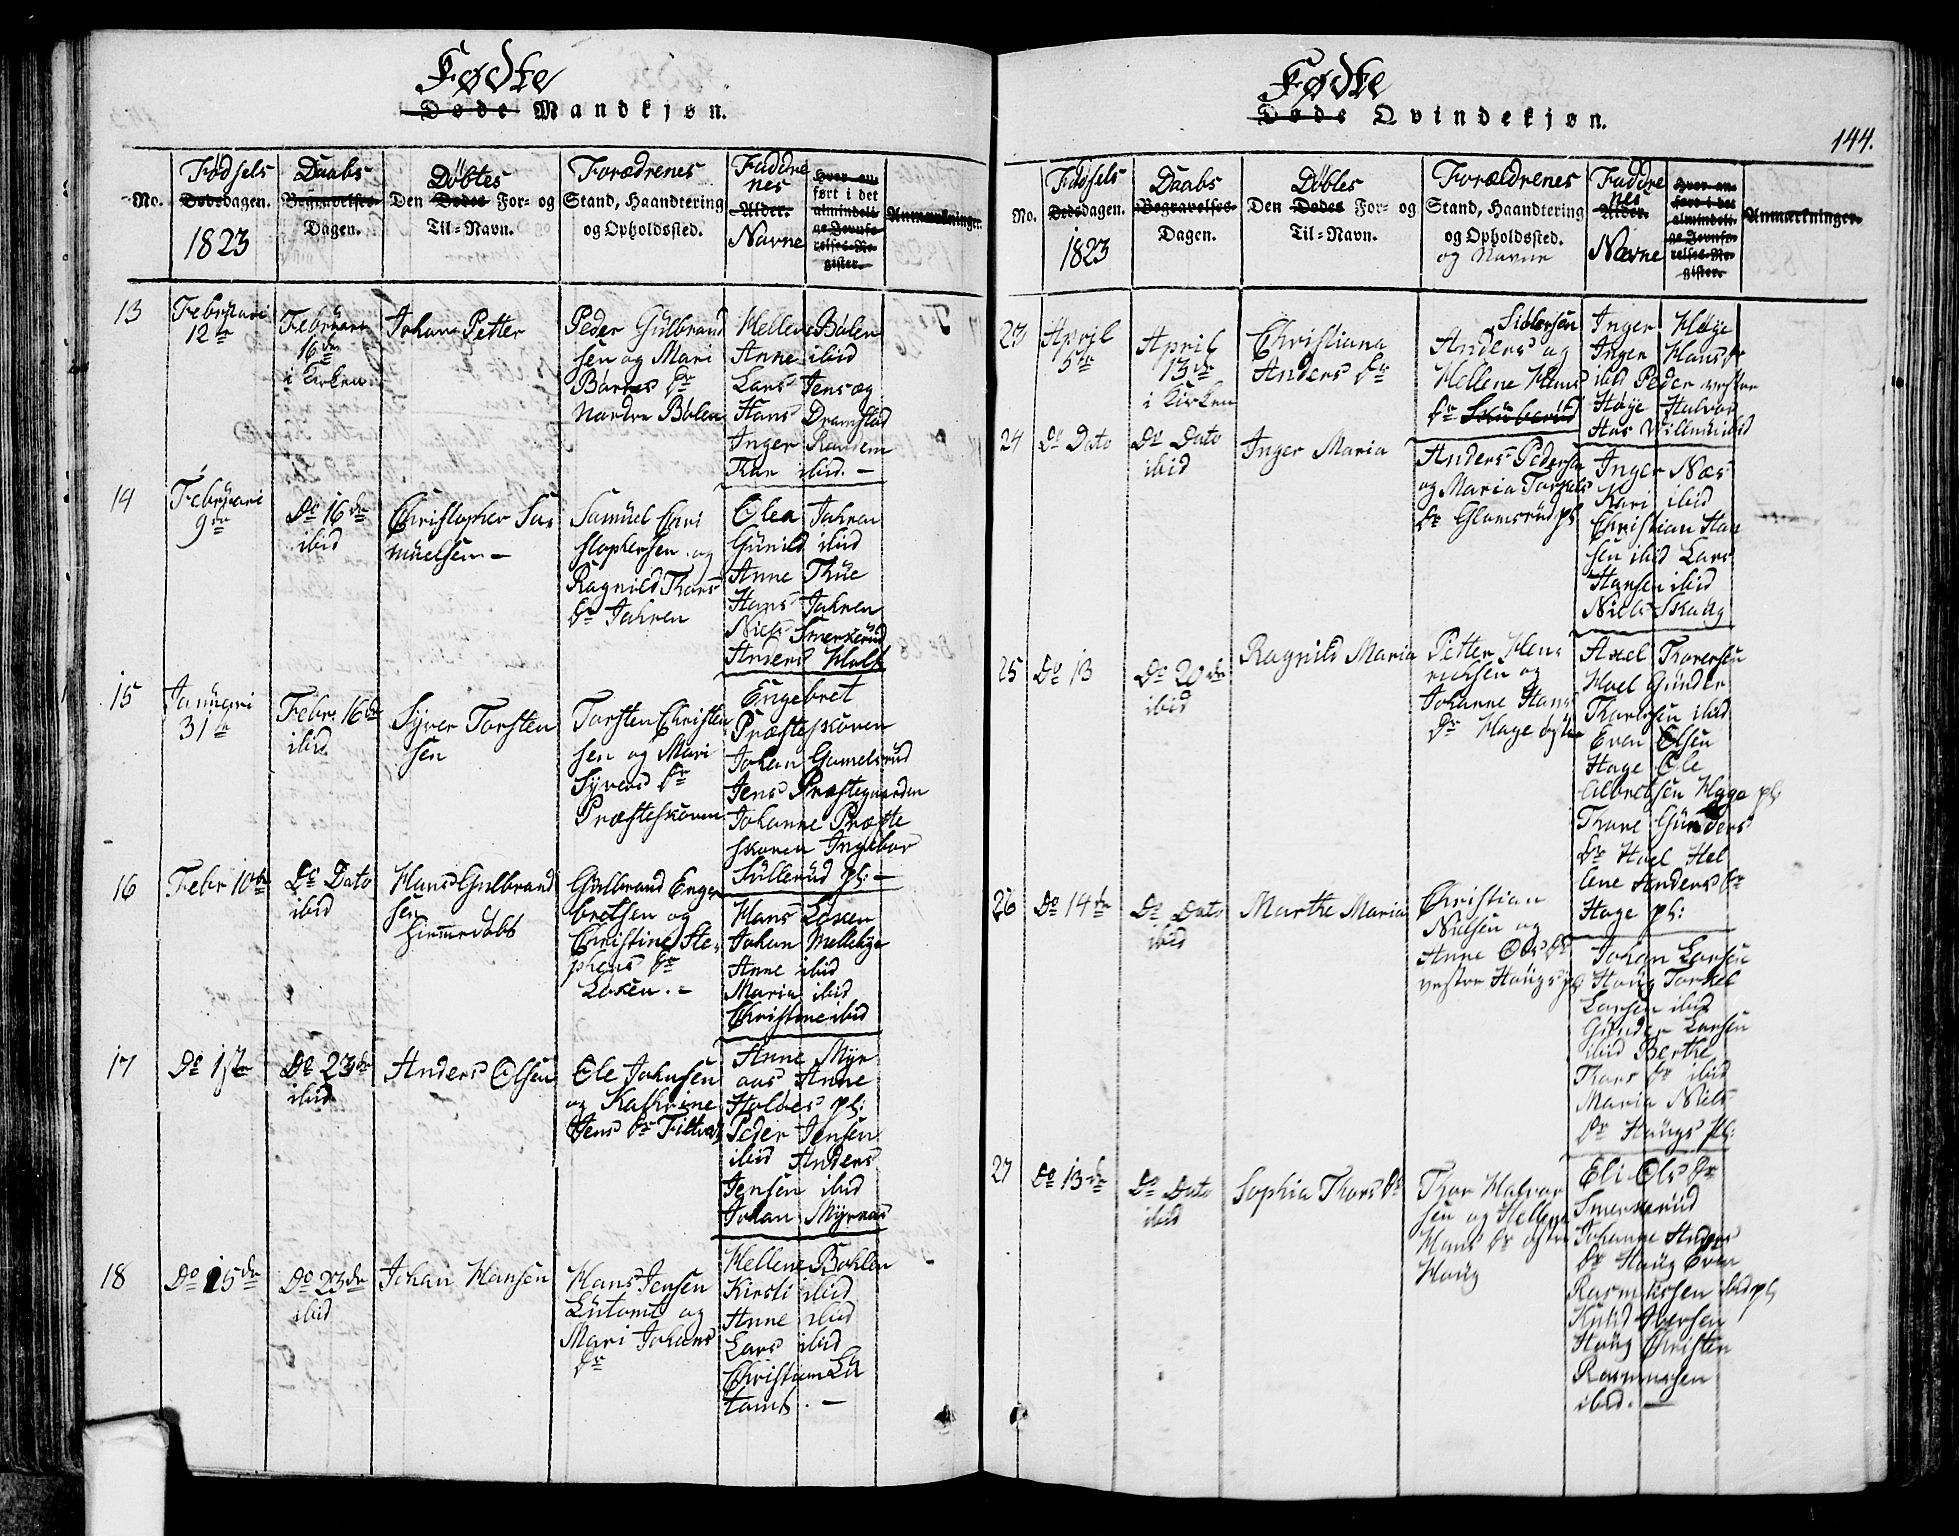 Fødte
Døde Mandkjøn.
No.
Fødsels
Dødsdagen.
1823
Daabs
Begravelses-
Dagen.
Døbtes
Den Dødes For- og
Til-Navn.
Forædrenes
Stand, Haandtering
og Opholdssted.
Faddre
nes
Alder.
Navne
Hvor an-
ført i det
almindeli-
ge Jevnfø-
relses-Re-
gister.
Anmærkninger.
13
Februari
12te
Februari
16de
i Kirken
Johan Petter
Peder Gulbrand
sen og Mari
Børres Dr
Nordre Bølen
Hellene Bølen
Anne ibid
Lars Jens og
Hans Dramstad
Inger Randem
Kari ibid. –
14
Februari
9de
Do 16de
ibid
Christopher Sa
muelsen –
Samuel Chri
stophersen og
Ragnild Thors
Dr Jahren
Olea Jahren
Gunild ibid
Anne Thue
Hans Jahren
Niels Smerkerud
Anders Holt
15
Januari
31te
Febr. 16de
ibid
Syver Torsten
sen
Torsten Christen
sen og Mari
Syvers Dr
Præsteskoven
Engebret
Præsteskoven
Johan Gamelsrud
Jens Præstegaarden
Johanne Præste
skoven Ingebor
Sullerud pl: –
16
Febr 10de
Do Dato
ibid
Hans Gulbrand
sen
hiemmedøbt
Gulbrand Enge
bretsen og
Christine Ste
phens Dr
Løken. –
Hans Løken
Johan Mellebye
Anne ibid
Maria ibid
Christine ibid
17
Do 1ste
Do 23de
ibid
Anders Olsen
Ole Johnsen
og Kathrine
Jens Dr
Anne Myr
aas Anne
Holdes pl:
Peder Jensen
ibid Anders
Jensen ibid
Johan Myraas
18
Do 15de
Do 23de
ibid
Johan Hansen
Hans Jensen
Lutomt og
Mari Johans
Dr
Hellene Bøhlen
Kirsti ibid
Anne ibid
Lars ibid
Christian Lu
tomt. –
Fødte
Døde Qvindekjøn.
144.
No.
Fødsels
Dødsdagen.
1823
Daabs
Begravelses-
Dagen.
Døbtes
Den Dødes For- og
Til-Navn.
Forældrenes
Stand, Haandtering
og Opholdssted.
og Navne
Faddre
nes
Alder.
Navne
Hvor an-
ført i det
almindeli-
ge Jevnfø-
relses-Re-
gister.
Anmærkninger.
23
April
5te
April
13de
i Kirken
Christiana
Anders Dr
Siversen
Anders og
Hellene Hans
Dr
Inger Høye
Inger Hans Dr
ibid Peder vestre
Høye Halvor
ibid
24
Do Dato
Do Dato
ibid
Inger Maria
Anders Pedersen
og Maria Torkels
Dr Glomsrud pl
Inger Næs
Kari ibid
Christian Han
sen ibid Lars
Hansen ibid
Niels Skaug
25
Do 13
Do 20de
ibid
Ragnild Maria
Petter Hen
ricksen og
Johanne Hans
Dr Hage østre
Axel Thoresen
Hoel Gunder
Thoresen ibid
Even Olsen
Hage Ole
Albretsen Hage pl:
Thore Gunders
Dr Hoel Hel
lene Anders Dr
Hage pl:
26
Do 14de
Do Dato
ibid
Marthe Maria
Christian
Nielsen og
Anne Ols Dr
vestre Haugs pl
Johan Larsen
Haug Torkel
Larsen ibid
Gunder Larsen
ibid Berthe
Thors Dr ibid
Maria Niels
Dr Haugs pl:
27
Do 13de
Do Dato
ibid
Sophia Thors Dr
Thor Halvor
sen og Hellene
Hans Dr østre
Haug
Eli Ols Dr
Smerkerud
Johanne Anders
Dr Haug Even
Rasmussen ibid pl
Knud Iversen
Haug Christen
Rasmussen
ibid. –